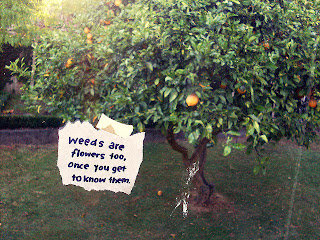 Weeds are
flowers too,
once you get
to know them.